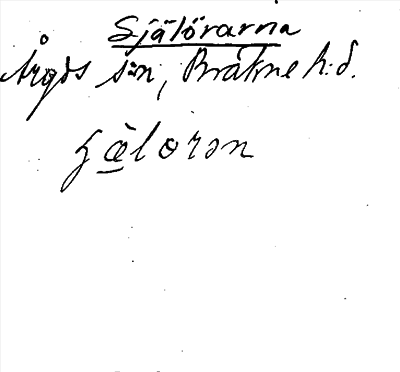 Själörarna
Åryds sn, Bräkne h:d.
ɧæ̀lorən